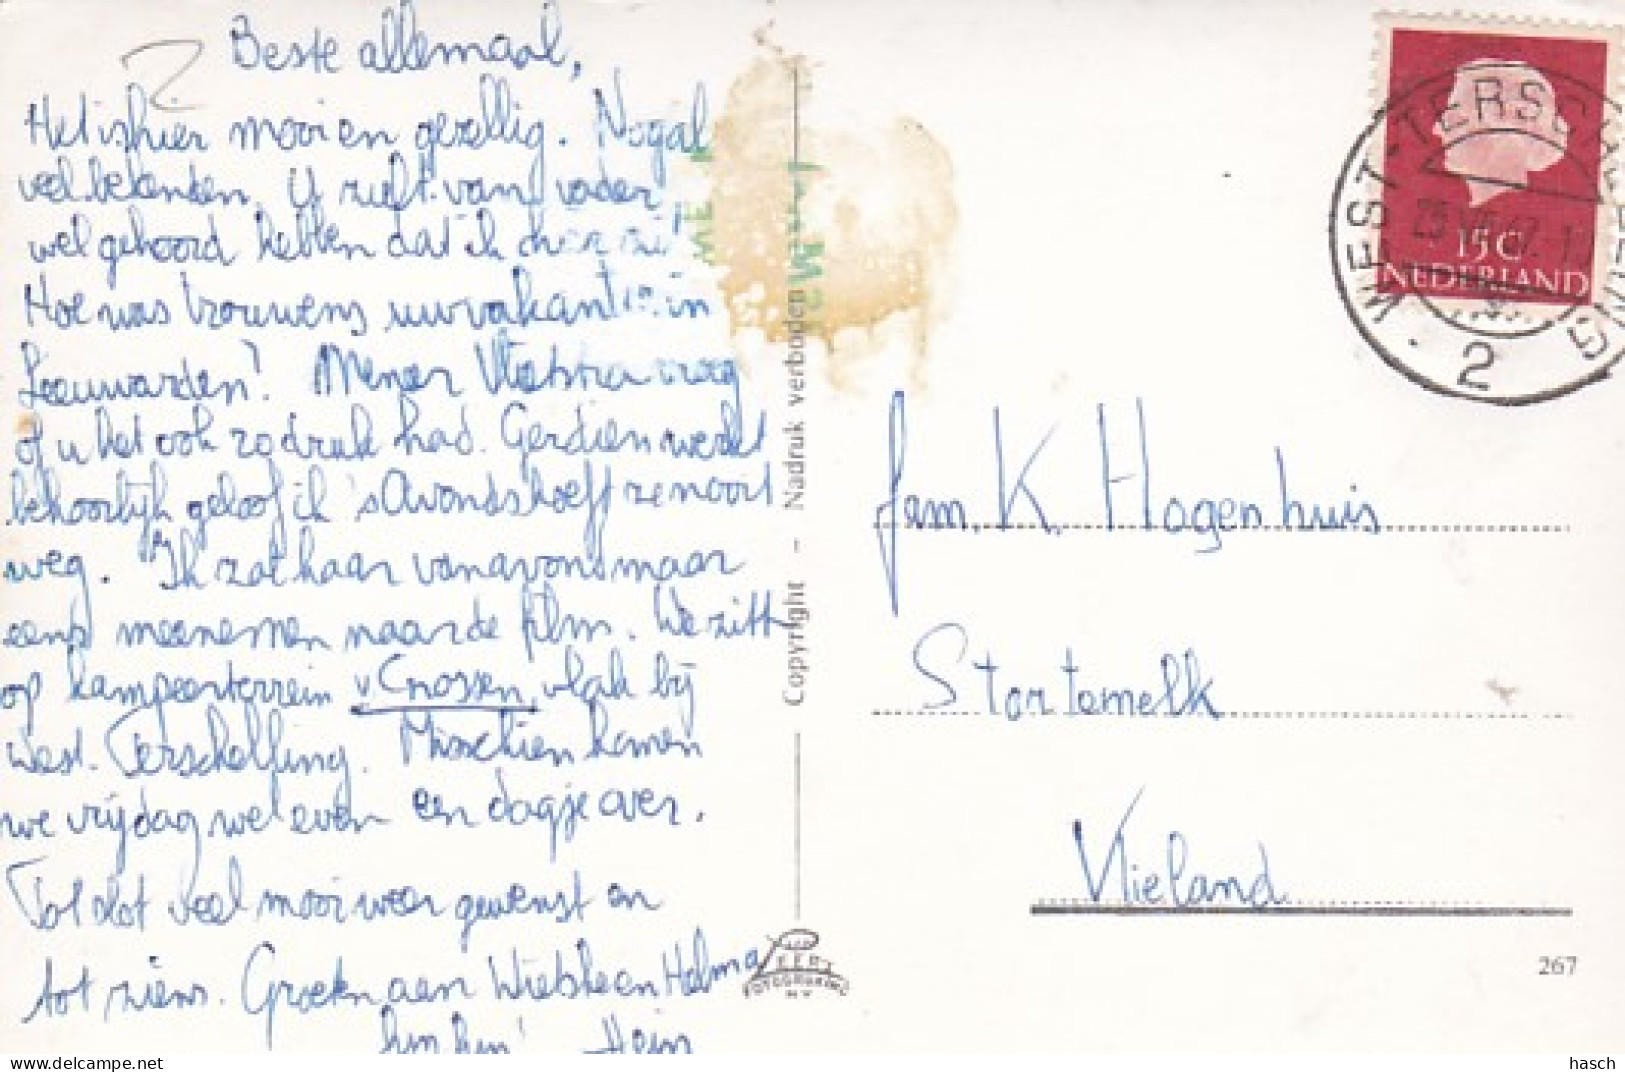 Beste allemaal,
Het is hier mooi en gezellig. Nogal
veel bekenden. U zult van vader
wel gehoord hebben dat ik hier zit
Hoe was trouwens uw vakantie in
Leeuwarden? Meneer Vlietstra vroeg
of u het ook zo druk had. Gerdien werkt
behoorlijk geloof ik 's Avonds hoeft ze nooit
weg. Ik zal haar vanavond maar
eens meenemen naar de film. We zitten
op kampeerterrein v Cnossen, vlak bij
West. Terschelling. Misschien komen
we vrijdag wel even een dagje over.
Tot slot veel mooi weer gewenst en
tot ziens. Groeten aan Wietske en Helma
Hein
Copyright - Nadruk verboden
WEST-TERSCHELLING
2
15 C
NEDERLAND
fam. K. Hagenhuis
Stortemelk
Vlieland
267
hasch